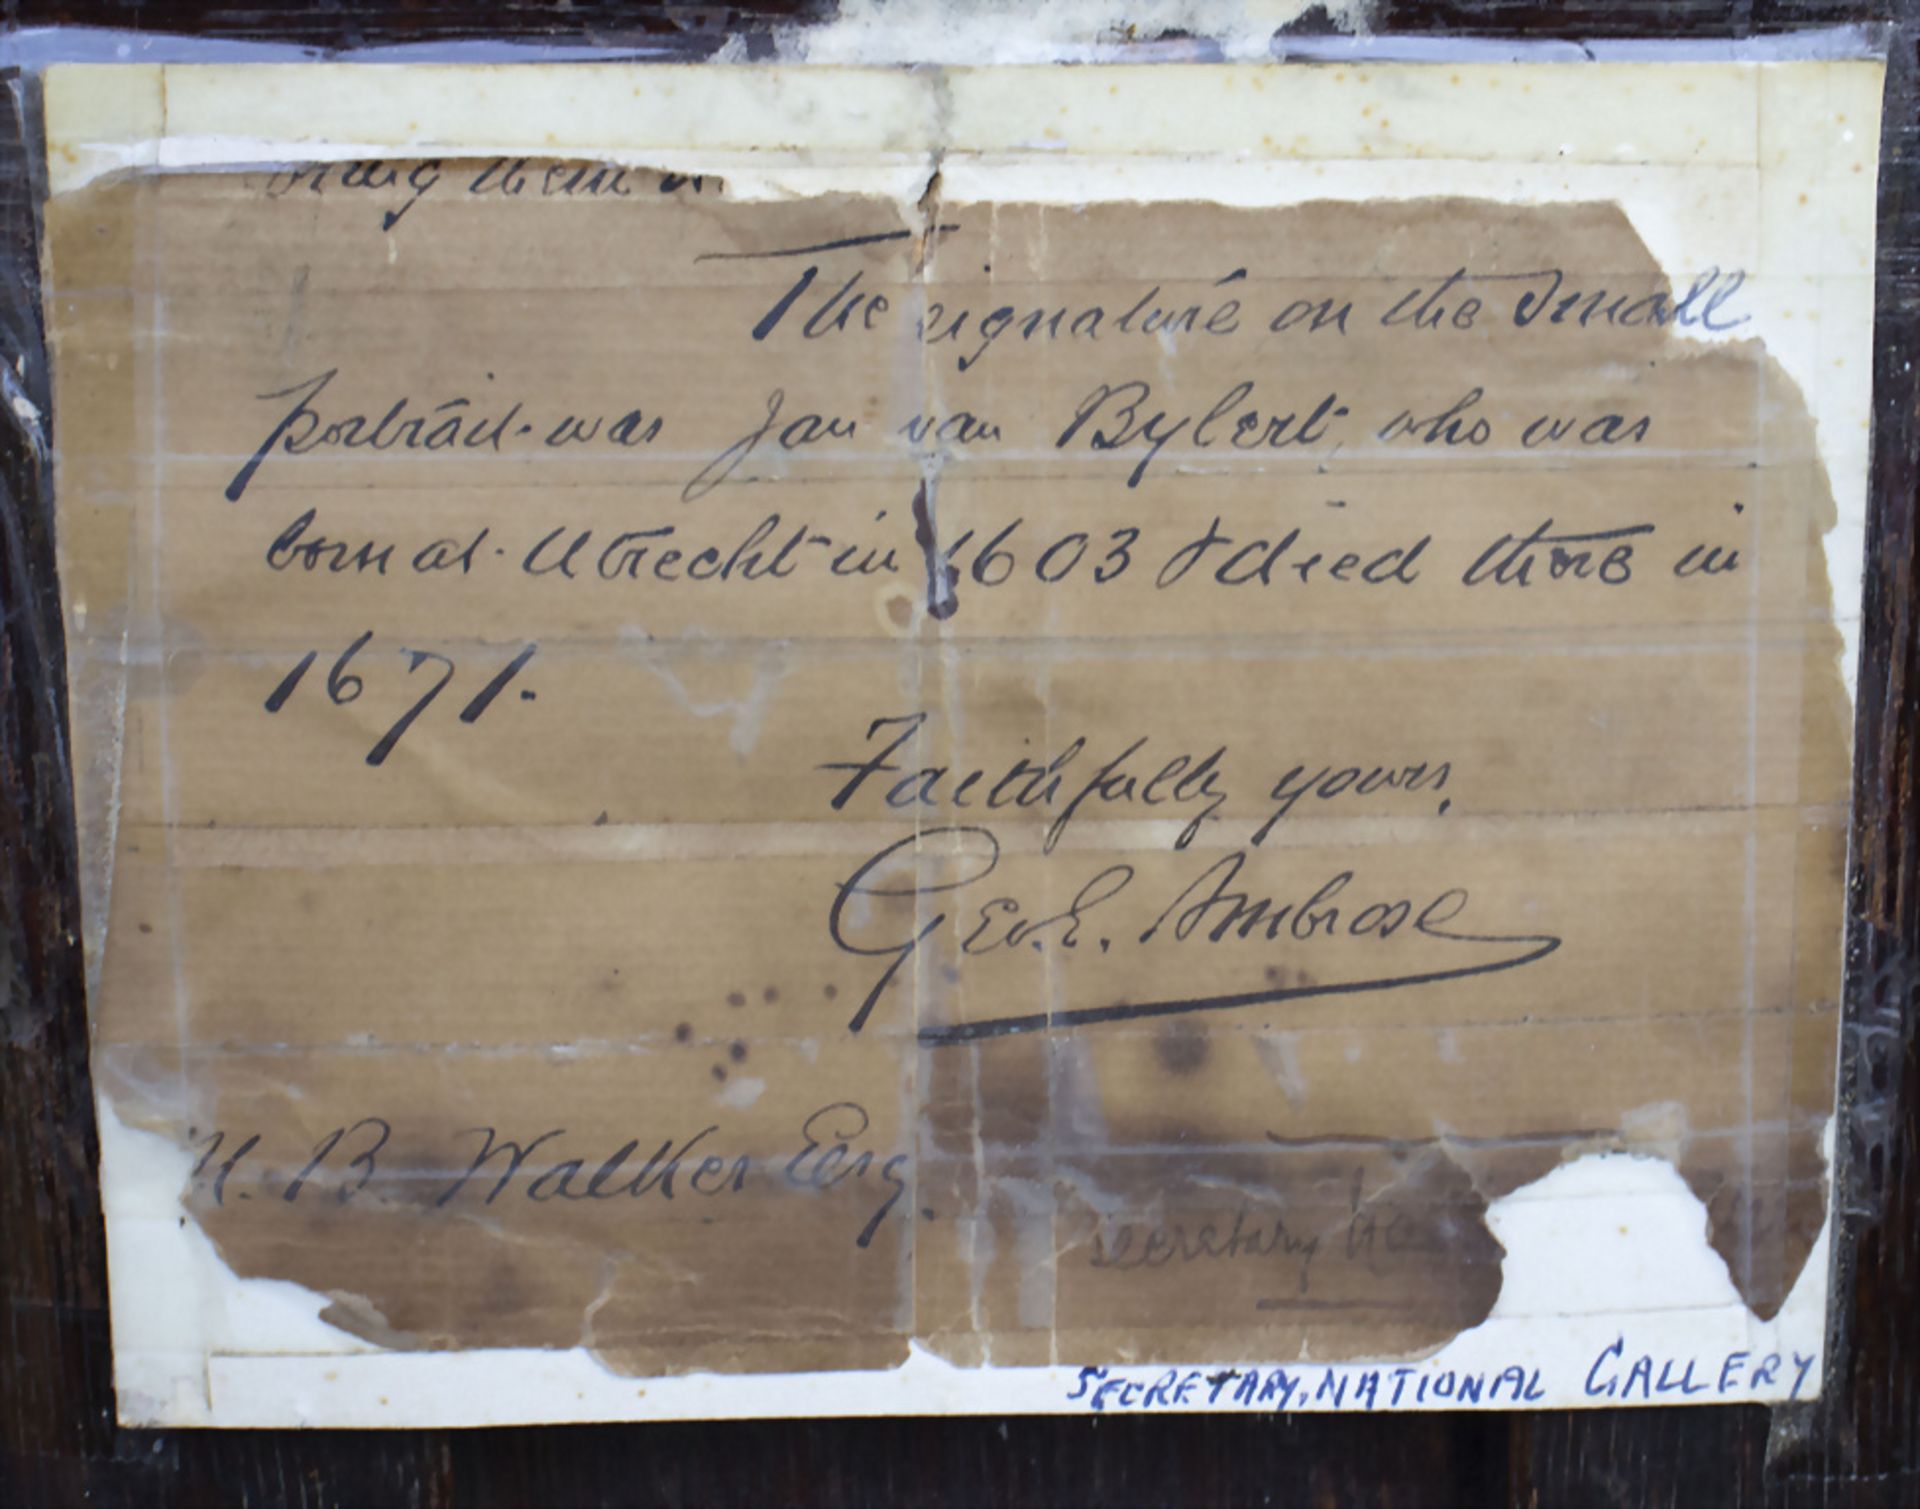 bring them
The signature on the small
portrait was Jan van Bylert, who was
born at Utrecht in 1603 & died there in
1671.
Faithfully yours,
Geo. E. Ambrose
H. B. Walker Esq.
Secretary
SECRETARY, NATIONAL GALLERY